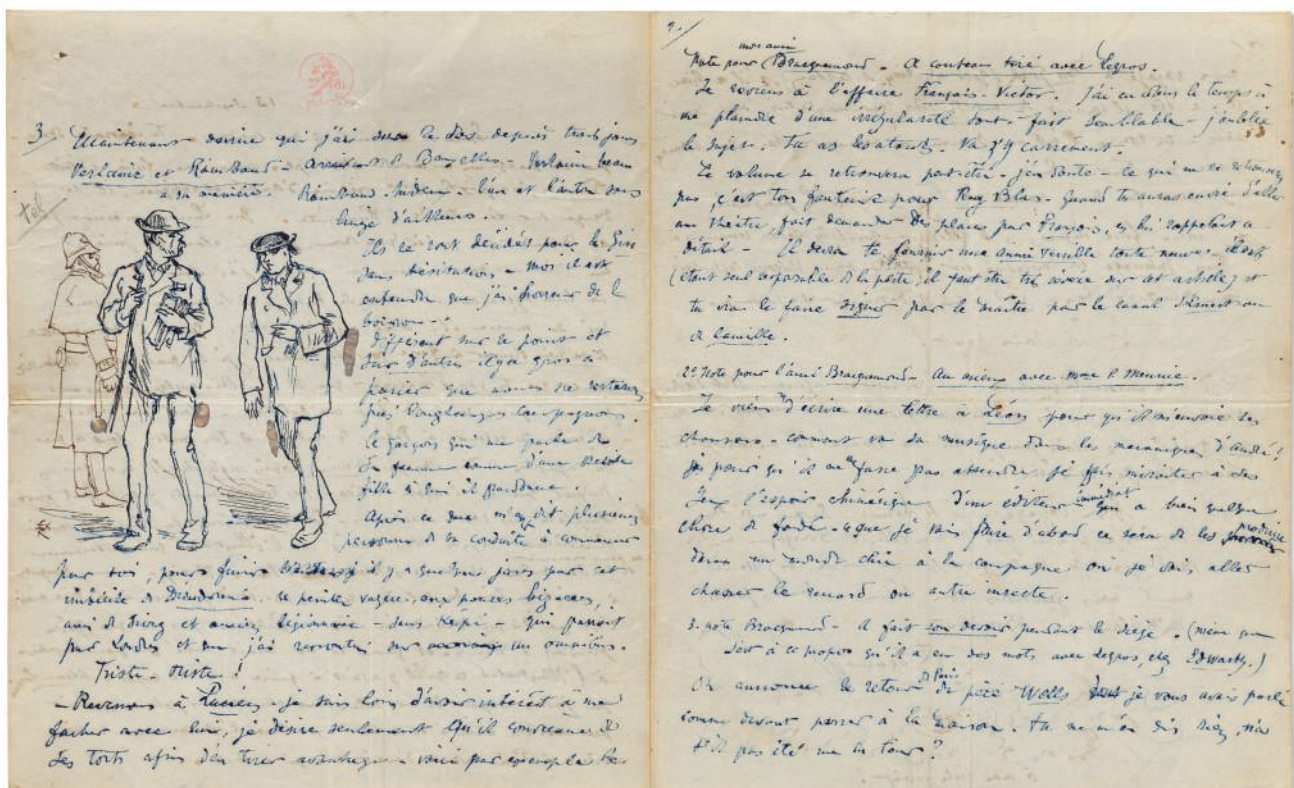 3
Maintenant devine qui j'ai sur le dos depuis trois jours
Verlaine et Rimbaud - arrivant de Bruxelles - Verlaine beau
à sa manière. Rimbaud hideux. L'un et l'autre sans
linge d'ailleurs.
tel
Ils se sont décidés pour le Gin
sans hésitation - moi il est
entendu que j'ai horreur de la
boisson -
Différent sur ce point et
sur d'autres il y a gros à
parier que nous ne resterons
pas longtemps compagnons.
Le garçon qui me parle de
sa femme comme d'une petite
fille à qui il pardonne.
Après ce que m'en dit plusieurs
personnes de sa conduite à commencer
par toi, pour finir il y a quelques jours par cet
imbécile de se penille vague, aux pouces bizarres,
ami de et ancien légionnaire - sans képi - qui passait
par Londres et que j'ai rencontré sur un omnibus.
Triste - triste!
- Revenons à Lucien - je suis loin d'avoir intérêt à me
facher avec lui, je désire seulement qu'il convienne de
ses torts afin d'en tirer avantage - voici par exemple le
2.
mon ami
Note pour Bracquemond - A couteau tiré avec Legros.
Je reviens à l'affaire François-Victor. J'ai eu dans le temps à
me plaindre d'une irrégularité tout-à-fait semblable - j'oublie
le sujet. Tu as les atouts. Va z'y carrément.
Le volume se retrouvera peut-être - j'en doute - ce qui ne se retrouvera
pas c'est ton fauteuil pour Ruy Blas. Quand tu auras envie d'aller
au théâtre, fait demander des places par François, en lui rappelant ce
détail - Il devra te fournir une année terrible toute neuve -
(étant seul responsable de la perte, il faut être très sévère sur cet article) et
tu vas le faire signer par le maître par le canal d'Ernest ou
de Camille.
2e Note pour l'ami Bracquemond - Au mieux avec Mme P. Meurice.
Je viens d'écrire une lettre à Léon pour qu'il m'envoie ses
chansons - comment va sa musique dans les mécaniques d'André!
pour qu'il ne fasse pas attendre je fais miroiter à ses
yeux l'espoir chimérique d'un éditeur immédiat qui a bien quelque
chose de fondé - ce que je vais faire d'abord ce sera de les produire
dans un monde chic à la campagne où je dois aller
chasser le renard ou autre insecte.
3e note Bracquemond - il fait son devoir pendant le siège. (même que
c'est à ce propos qu'il a eu des mots avec Legros, chez Edwards.)
On annonce le retour de Paris du père Wells dont je vous avais parlé
comme devant passer à la maison. Tu ne m'en dis rien, n'a
t'il pas été me la tour?